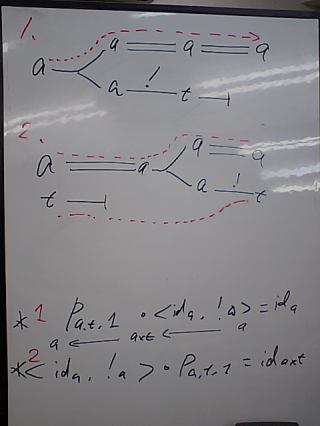 1.
a a a a
a ! t
2.
a a a a
a ! t
t
*1 Pa,t,1 ∘ <ida, !a> = ida
a ← axt ← a
*2 < ida, !a > ∘ Pa,t,1 = idaxt